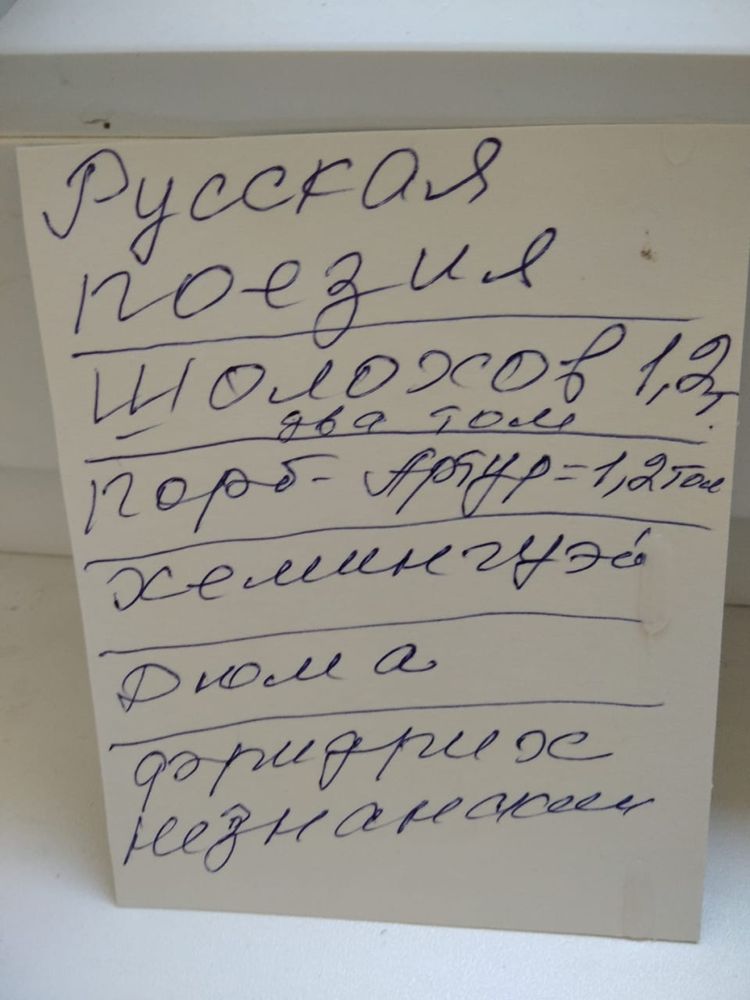 Русская
поезия
Шолохов 1,2,
два том
Порб- Артур=1,2 том
Хемингуэй
Дюма
Фэридрих
незнанский